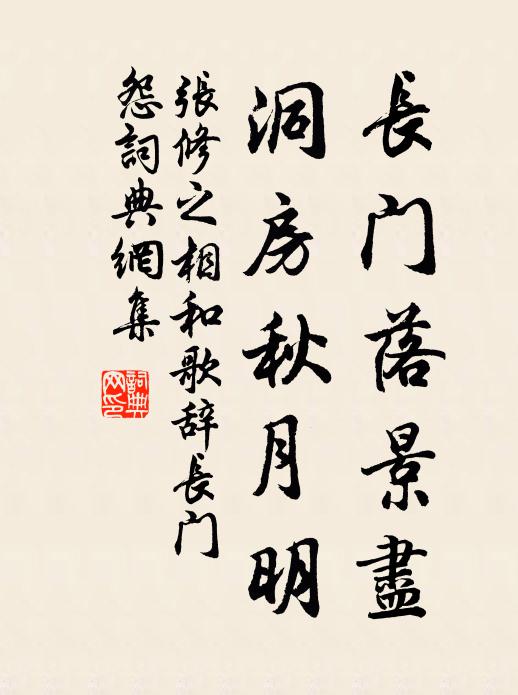 長门落景盡
洞房秋月明
張修之相和歌辞長门
怨詞典網集
詞典
网印